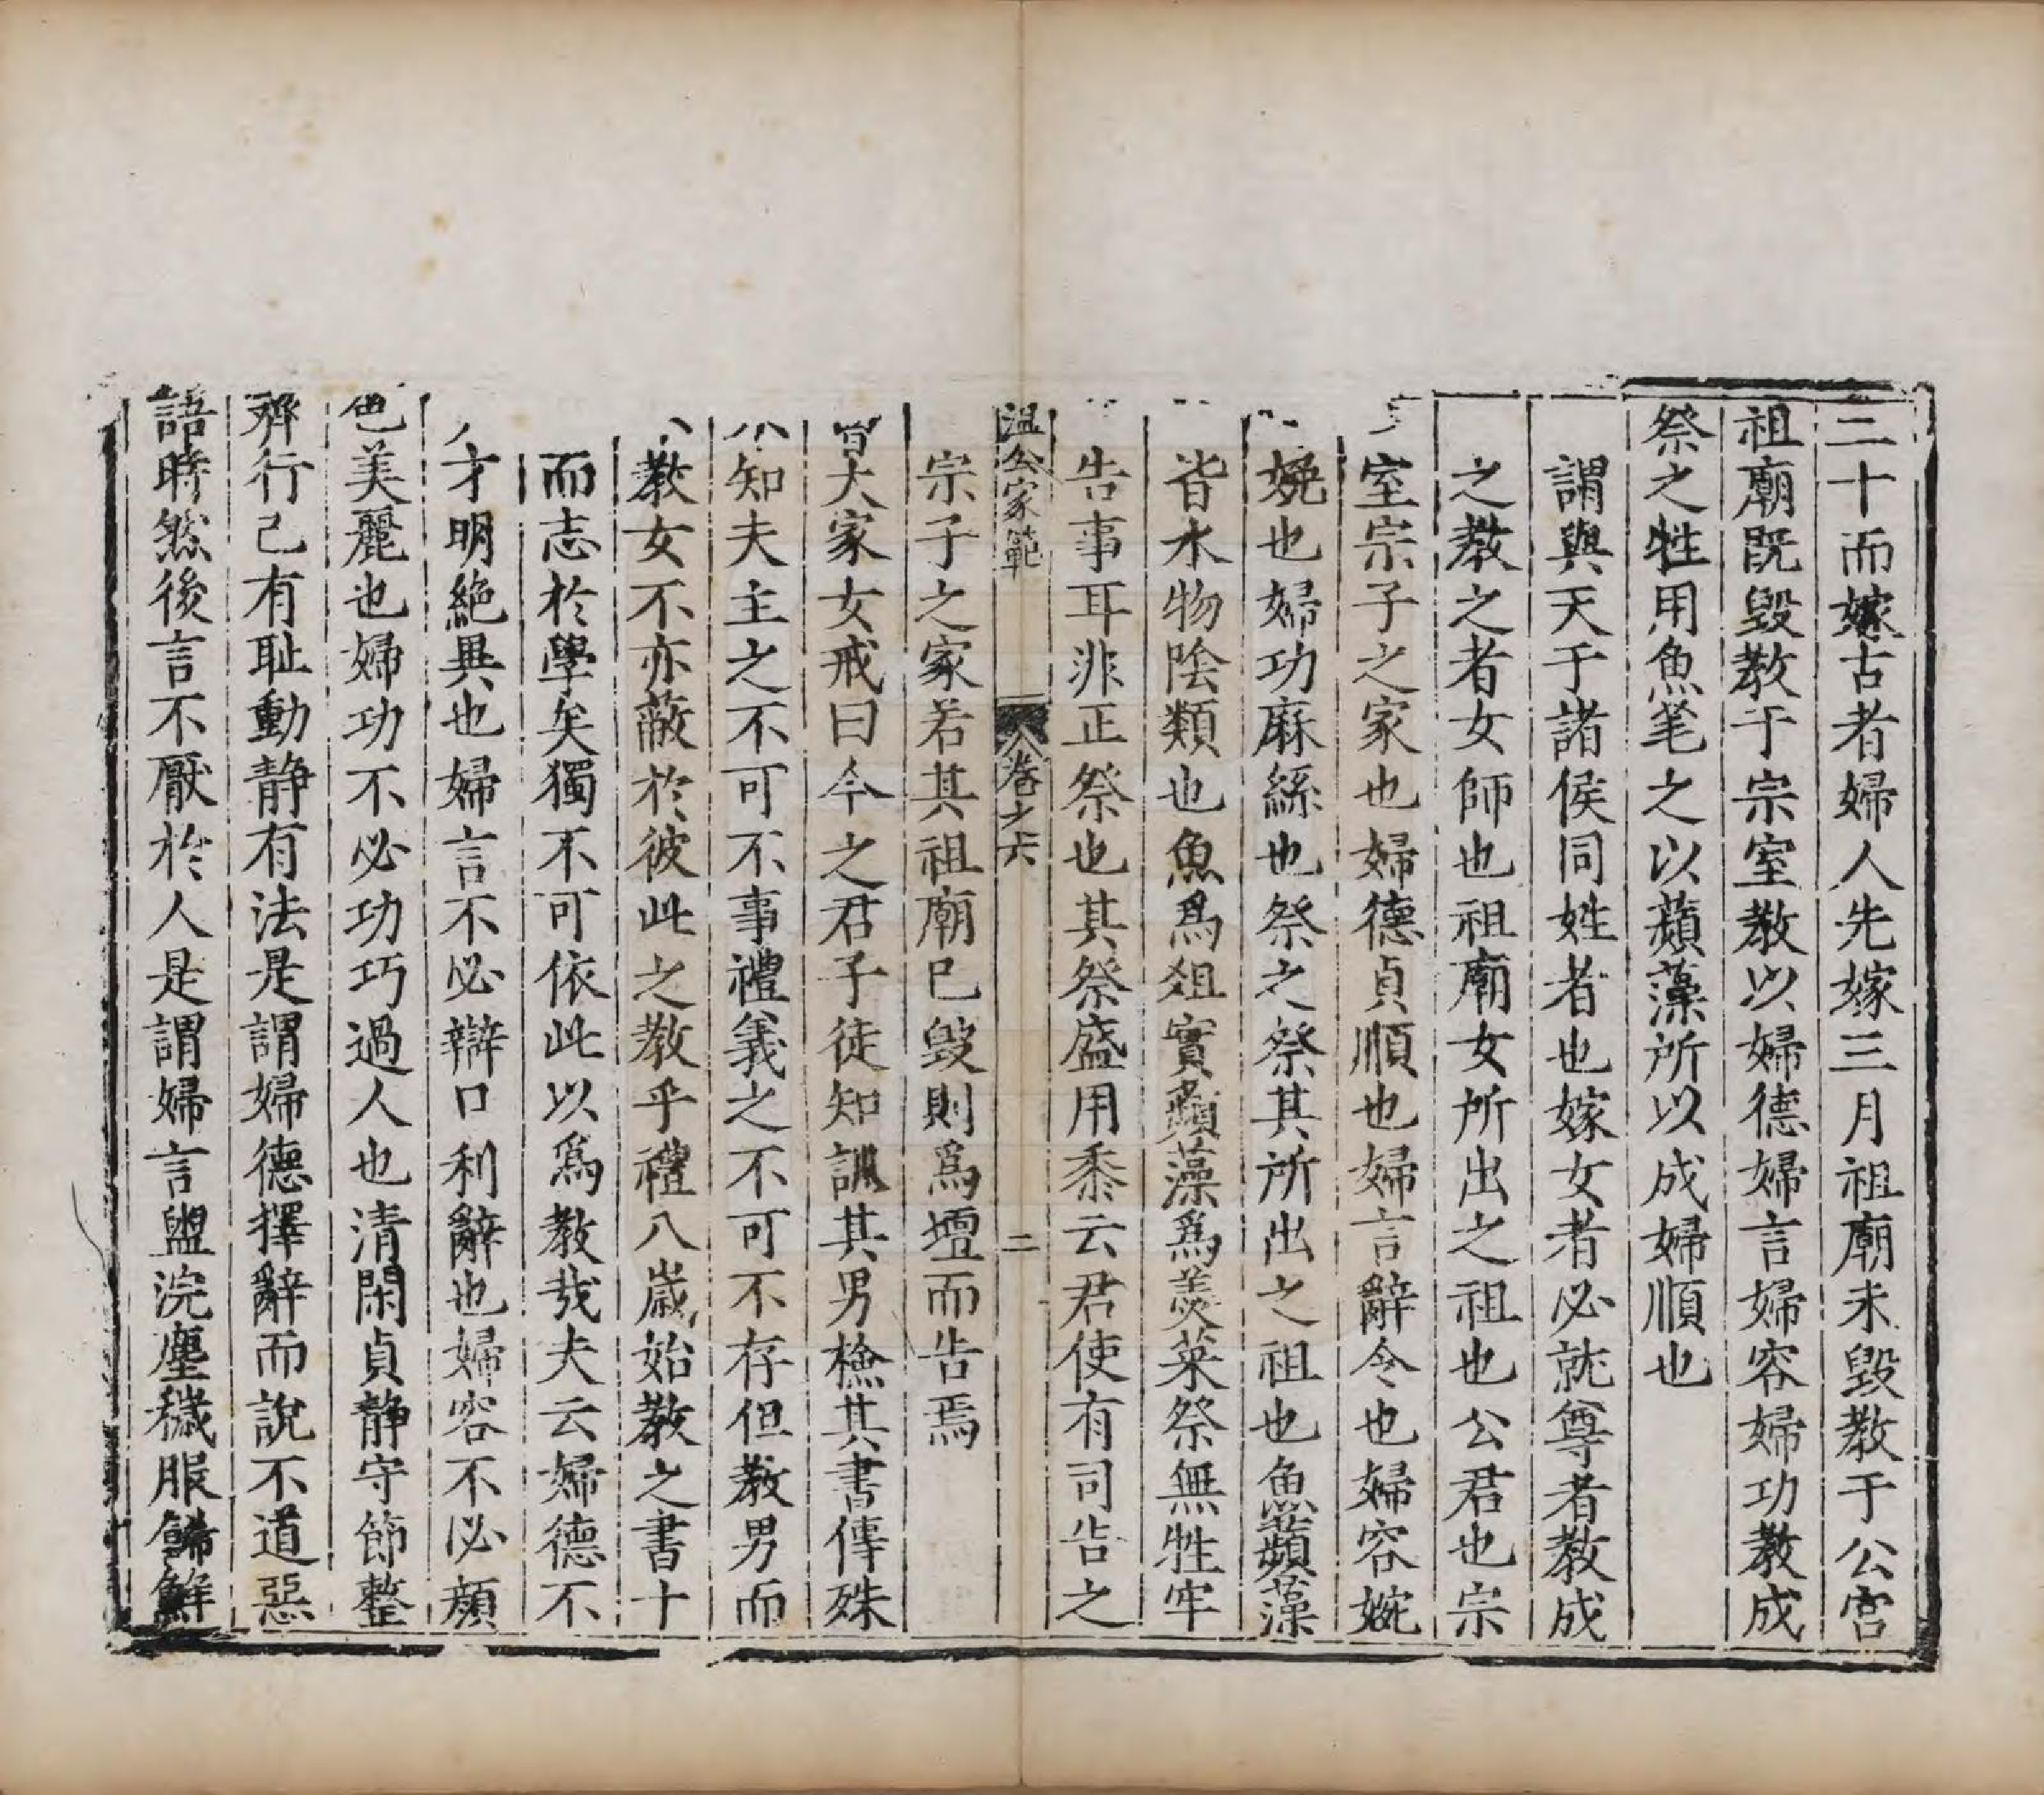 二十而嫁古者婦人先嫁三月祖廟未毀教于公宮
祖廟既毀教于宗室教以婦德婦言婦容婦功教成
祭之牲用魚芼之以蘋藻所以成婦順也
謂與天子諸侯同姓者也嫁女者必就尊者教成
之教之者女師也祖廟女所出之祖也公君也宗
室宗子之家也婦德貞順也婦言辭令也婦容婉
娩也婦功麻絲也祭之祭其所出之祖也魚蘋藻
皆水物陰類也魚爲俎實蘋藻爲羮菜祭無牲牢
告事耳非正祭也其祭盛用黍云君使有司告之
溫公家範 卷之六 二
宗子之家若其祖廟已毀則爲壇而告焉
大家女戒曰今之君子徒知訓其男檢其書傳殊
不知夫主之不可不事禮義之不可不存但教男而
教女不亦蔽於彼此之教乎禮八歲始教之書十
而志於學矣獨不可依此以爲教哉夫云婦德不
才明絶異也婦言不必辯口利辭也婦容不必顔
色美麗也婦功不必功巧過人也清閑貞靜守節整
齊行己有恥動静有法是謂婦德擇辭而說不道惡
語時然後言不厭於人是謂婦言盥浣塵穢服飾鮮